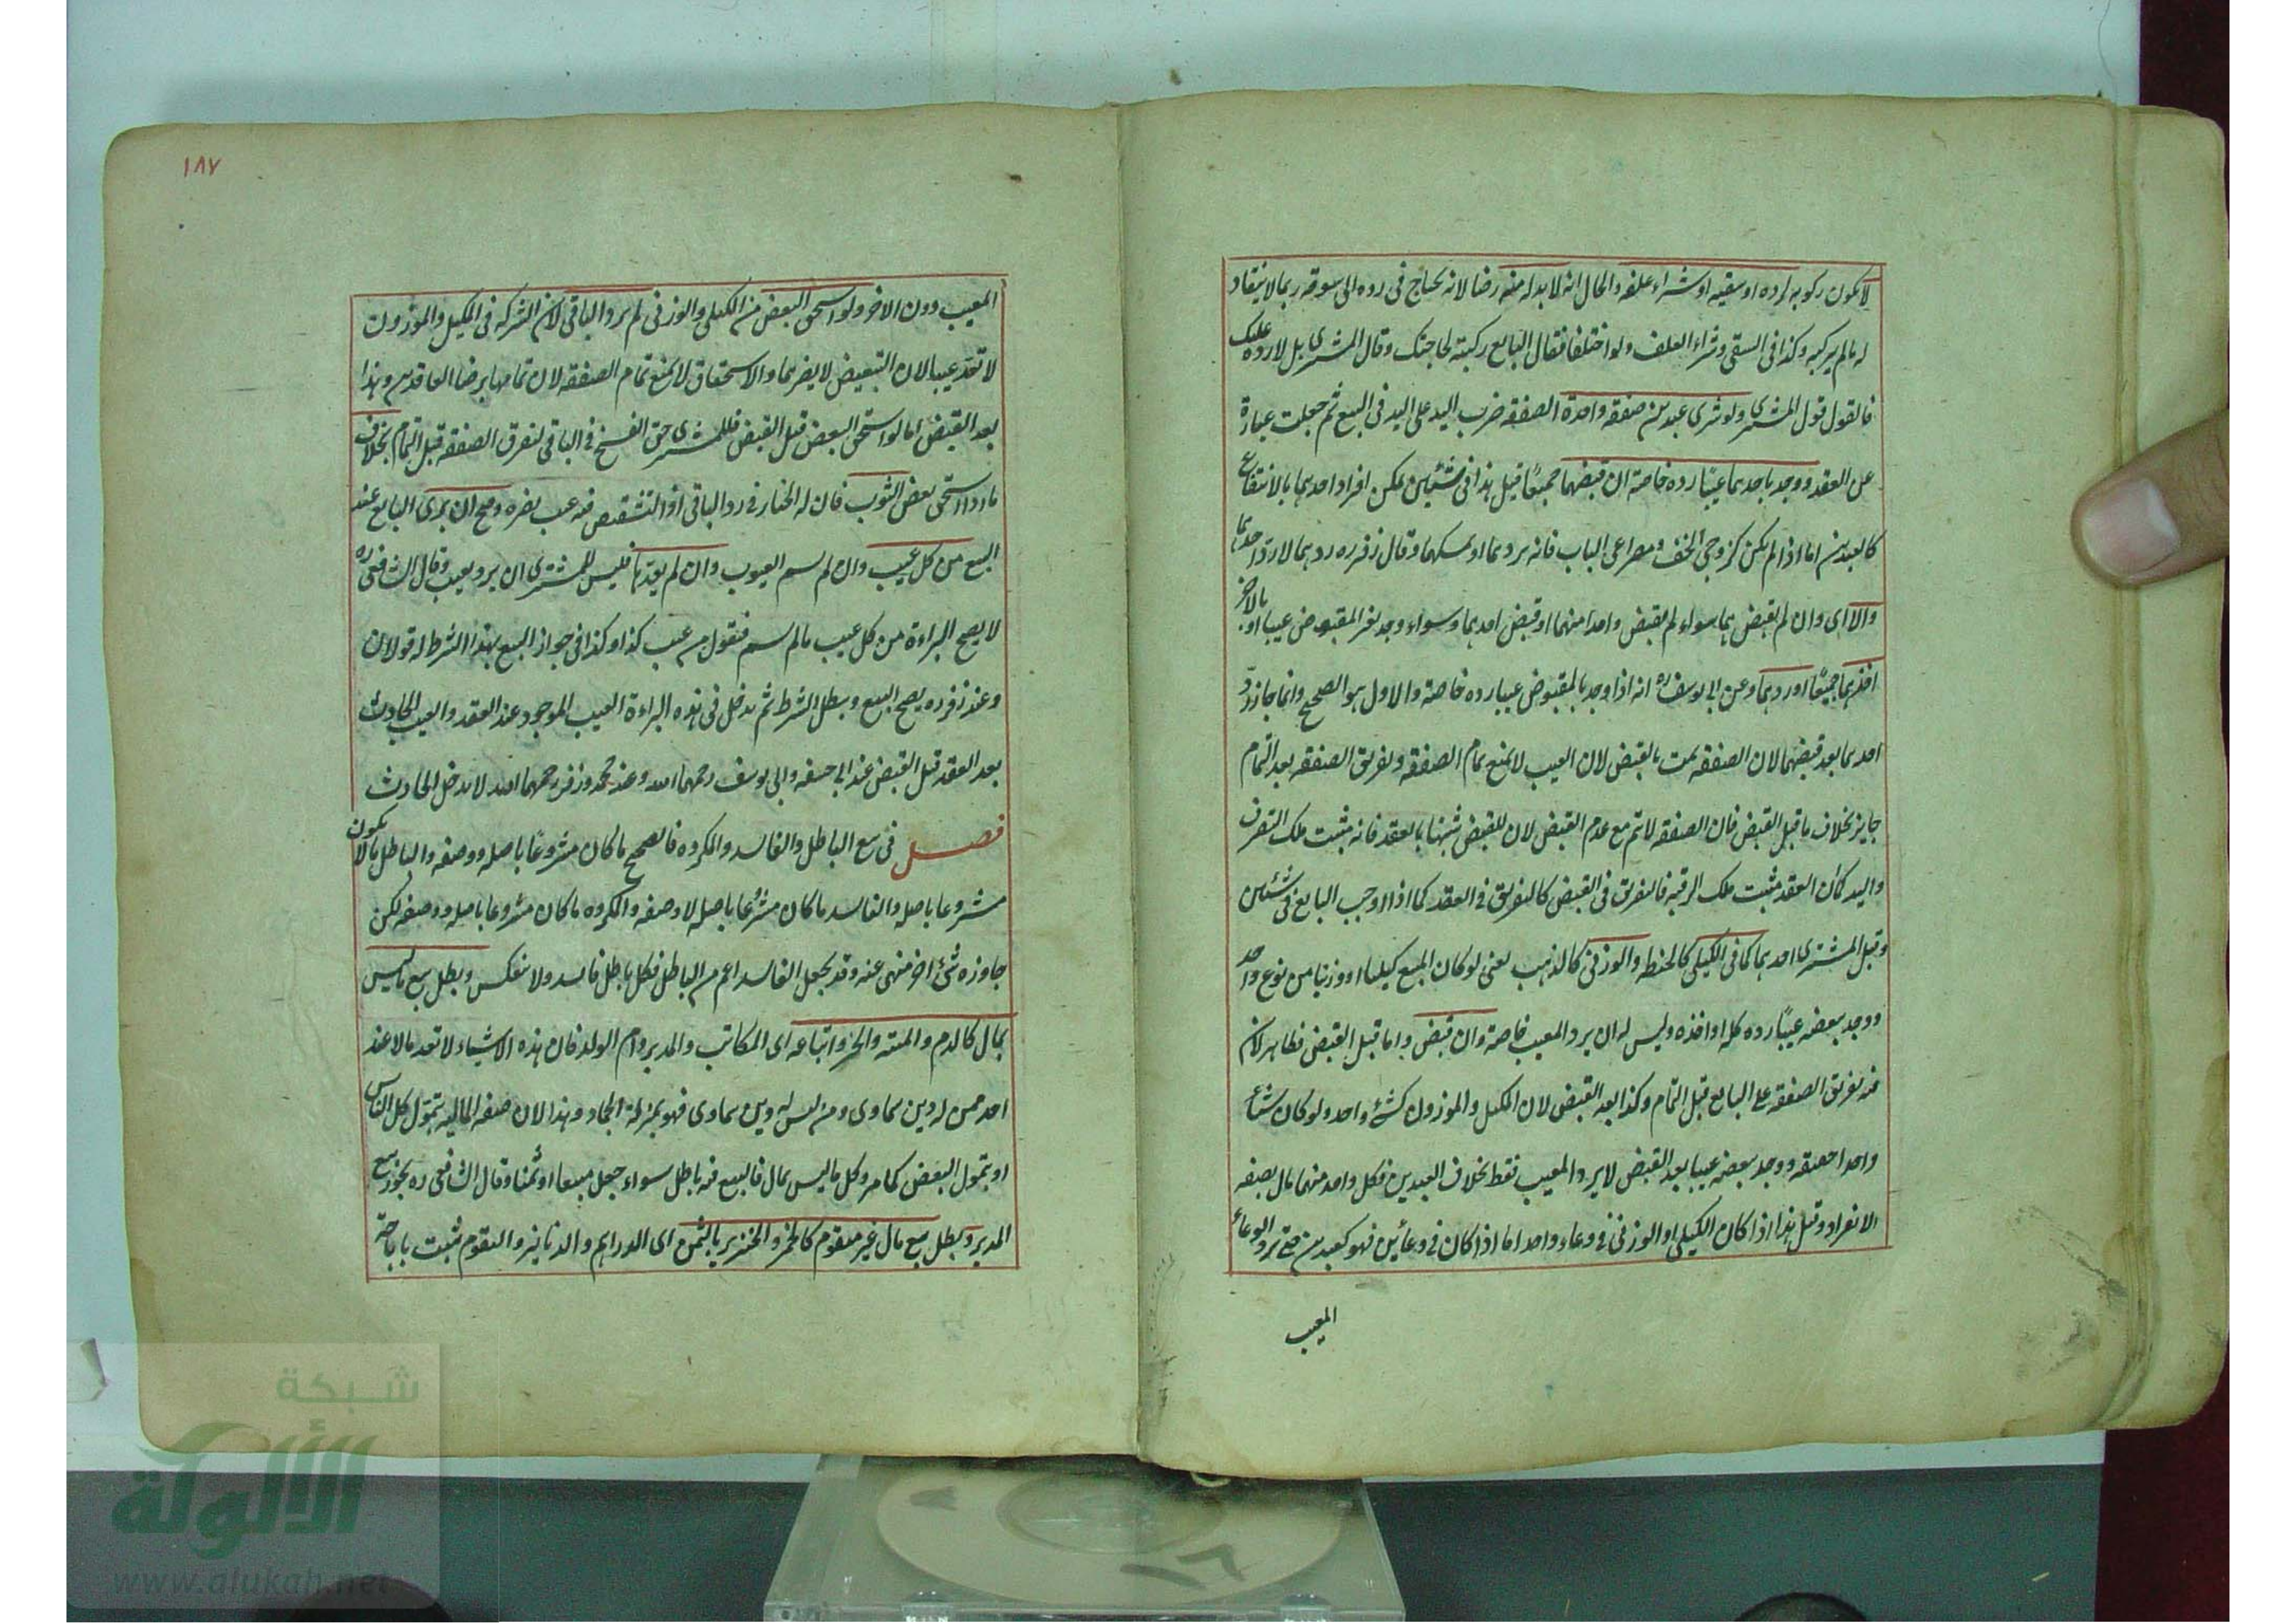 لا يكون ركوبه لرده او سقيه او شراء علفه والحال انه لا بد له منه رضا لانه يحتاج في رده الى سوقه ربما لا ينقاد
له ما لم يركبه وكذا في السقي وشراء العلف ولو اختلفا فقال البايع ركبته لحاجتك وقال المشتري بل لارده عليك
فالقول قول المشتري ولو شرى عبدين صفقة واحدة الصفقة ضرب اليد على اليد في البيع ثم جعلت عبارة
عن العقد ووجد باحدهما عيبًا رده خاصة ان قبضهما جميعًا قيل هذا في شيئين يمكن افراد احدهما بالانتفاع
كالعبدين اما اذا لم يكن كزوجي الخف ومصراعي الباب فانه يردهما او يمسكهما وقال زفر ره ردهما لا رد احدهما
والا اي وان لم يقبضهما سواء لم يقبض واحدا منهما او قبض احدهما وسواء وجد بغير المقبوض عيبا او بالاخر
اخذهما جميعًا او ردهما وعن ابي يوسف ره انه اذا وجد بالمقبوض عيبا رده خاصة والاول هو الصحيح وانما جاز رد
احدهما بعد قبضهما لان الصفقة تمت بالقبض لان العيب لا يمنع تمام الصفقة وتفريق الصفقة بعد التمام
جايز بخلاف ما قبل القبض فان الصفقة لا تتم مع عدم القبض لان للقبض شبها بالعقد فانه مثبت ملك التصرف
واليد كان العقد مثبت ملك الرقبة فالتفريق في القبض كالتفريق في العقد كما اذا اوجب البايع في شيئين
وقبل المشتري احدهما كما في الكيلي كالحنطة والوزني كالذهب يعني لو كان المبيع كيليا او وزنيا من نوع واحد
ووجد ببعضه عيبًا رده كله او اخذه وليس له ان يرد المعيب خاصة وان قبض واما قبل القبض فظاهر لان
فيه تفريق الصفقة على البايع قبل التمام وكذا بعد القبض لان المكيل والموزون كشئ واحد ولو كان شيئا
واحدا حقيقة ووجد ببعضه عيبا بعد القبض لا يرد المعيب فقط بخلاف العبدين فكل واحد منهما مال بصفة
الانفراد وقيل هذا اذا كان الكيلي او الوزني في وعاء واحد اما اذا كان في وعائين فهو كعبدين حتى يرد الوعاء
المعيب
١٨٧
المعيب دون الاخر ولو استحق البعض من الكيلي والوزني لم يرد الباقي لان الشركة في المكيل والموزون
لا تعد عيبا لان التبعيض لا يضرهما والاستحقاق لا يمنع تمام الصفقة لان تمامها برضا العاقدين وهذا
بعد القبض اما لو استحق البعض قبل القبض فللمشتري حق الفسخ في الباقي لتفرق الصفقة قبل التمام بخلاف
ما اذا استحق بعض الثوب فان له الخيار في رد الباقي اذ التشقيص فيه عيب يضره وصح ان يبرى البايع عند
البيع من كل عيب وان لم يسم العيوب وان لم يعدها فليس للمشتري ان يرد بعيب وقال الشافعي ره
لا يصح البراءة من كل عيب ما لم يسم فيقول من عيب كذا وكذا في جواز البيع بهذا الشرط له قولان
وعند زفر ره يصح البيع ويبطل الشرط ثم يدخل في هذه البراءة العيب الموجود عند العقد والعيب الحادث
بعد العقد قبل القبض عند ابي حنيفة وابي يوسف رحمهما الله وعند محمد وزفر رحمهما الله لا يدخل الحادث
فصل في بيع الباطل والفاسد والمكروه فالصحيح ما كان مشروعًا باصله ووصفه والباطل ما لا يكون
مشروعا باصله والفاسد ما كان مشروعًا باصله لا وصفه والمكروه ما كان مشروعا باصله ووصفه لكن
جاوزه شئ اخر منهي عنه وقد يجعل الفاسد اعم من الباطل فكل باطل فاسد ولا ينعكس وبطل بيع ما ليس
بمال كالدم والميتة والحر واتباعه اي المكاتب والمدبر وام الولد فان هذه الاشياء لا تعد مالا عند
احد ممن له دين سماوي ومن ليس له دين سماوي فهو بمنزلة الجماد وهذا لان صفة المالية بتمول كل الناس
او بتمول البعض كما مر وكل ما ليس بمال فالبيع فيه باطل سواء جعل مبيعا او ثمنا وقال الشافعي ره يجوز بيع
المدبر وبطل بيع مال غير متقوم كالخمر والخنزير بالثمن اي الدراهم والدنانير والتقوم يثبت باباحة
شبكة
الألوكة
www.alukah.net